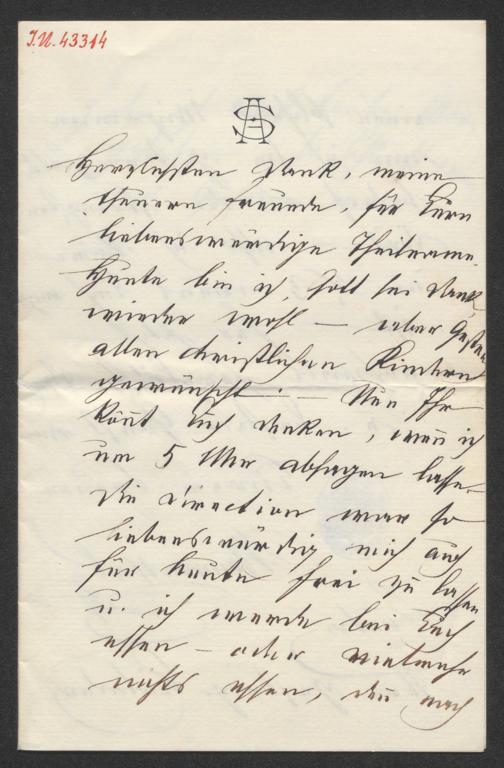 I.N. 43314
AS
Herzlichsten Dank, meine
theuern Freunde, für Eure
liebenswürdige Theilname.
Heute bin ich, Gott sei Dank,
wieder wohl — aber Gestern
allen christlichen Kindern
gewünscht! — Nun Ihr
könnt Euch denken, wenn ich
um 5 Uhr absagen lasse.
Die Direction war so
liebenswürdig mich auch
für heute frei zu lassen
u. ich werde bei Euch
essen — oder vielmehr
nichts essen, den̄ nach